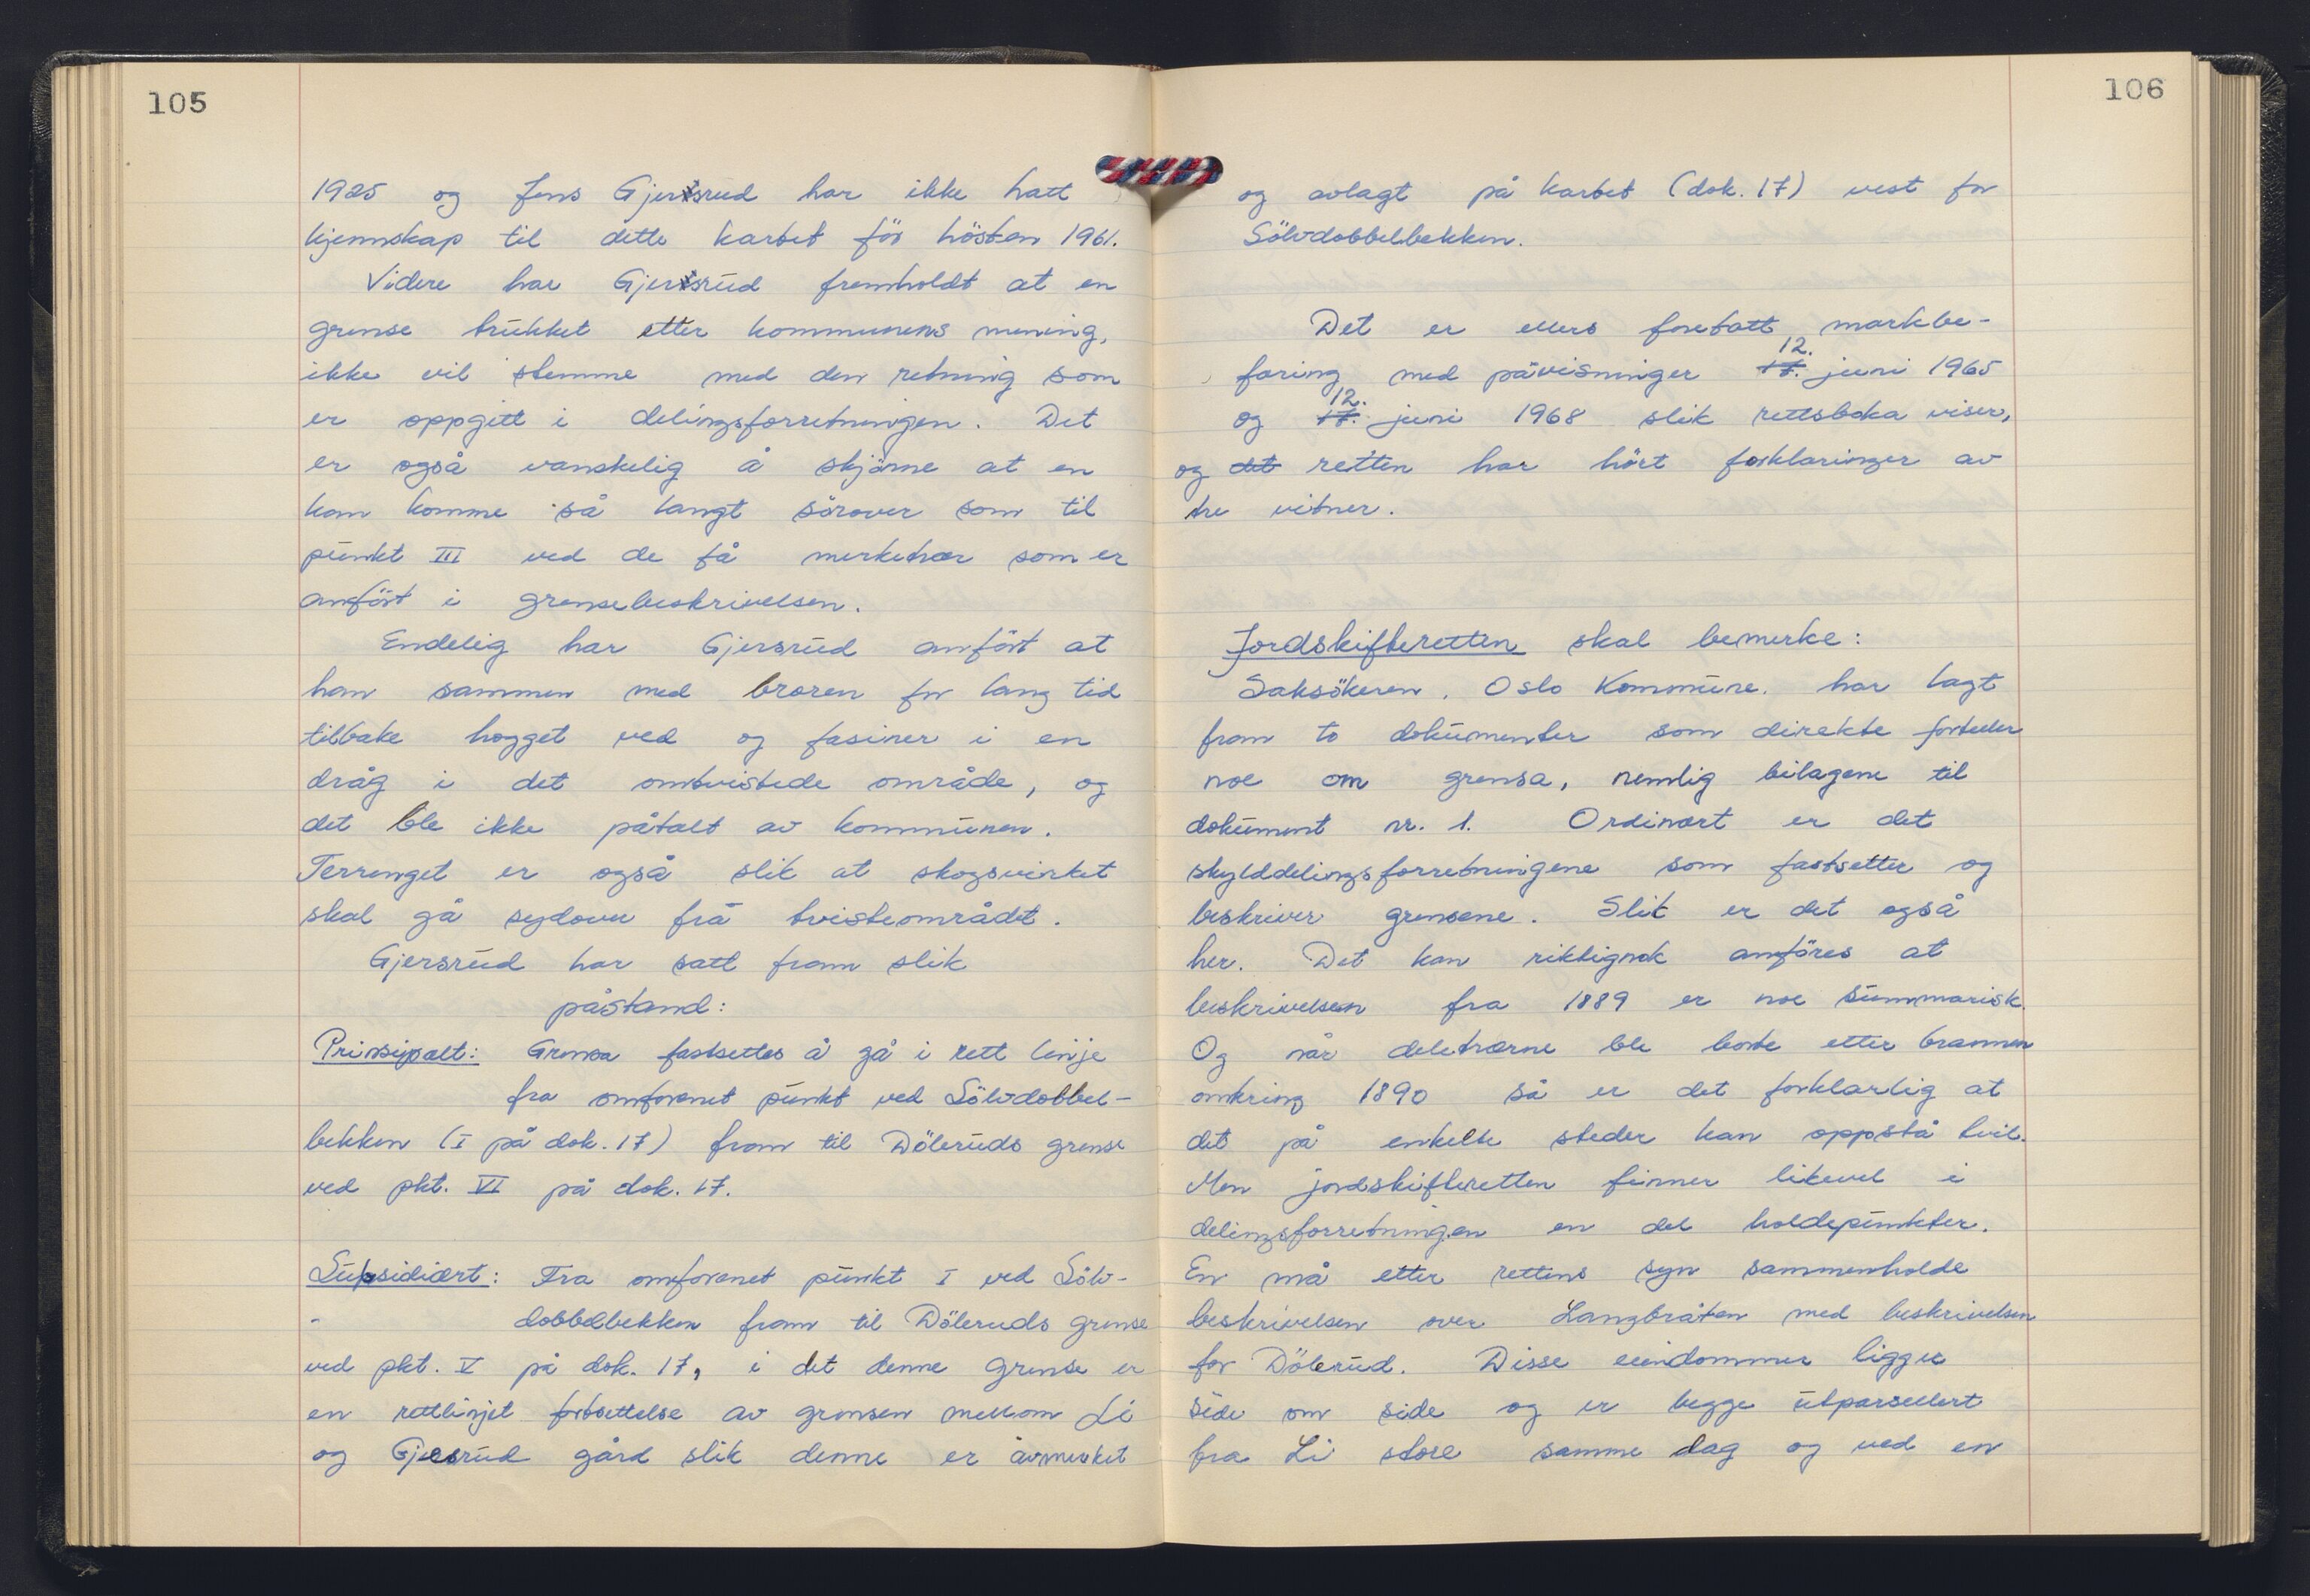 105
1925 og Jens Gjersrud har ikke hatt
kjennskap til dette kartet før høsten 1961.
Videre har Gjersrud fremholdt at en
grense trukket etter kommunens mening,
ikke vil stemme med den retning som
er oppgitt i delingsforretningen. Det
er også vanskelig å skjønne at en
kan komme så langt sörover som til
punkt III ved de få merketrær som er
anfört i grensebeskrivelsen.
Endelig har Gjersrud anfört at
han sammen med broren for lang tid
tilbake hogget ved og fasiner i en
dråg i det omtvistede område, og
det ble ikke påtalt av kommunen.
Terrenget er også slik at skogsvirket
skal gå sydover frå tvisteområdet.
Gjersrud har satt fram slik
påstand:
Prinsipalt: Grensa fastsettes å gå i rett linje
fra omforenet punkt ved Sölvdobbel-
bekken (I på dok. 17) fram til Döleruds grense
ved pkt. VI på dok. 17.
Subsidiært: Fra omforenet punkt I ved Sölv-
dobbelbekken fram til Döleruds grense
ved pkt. V på dok. 17, i det denne grense er
en rettlinjet fortsettelse av grensen mellom Li
og Gjersrud gård slik denne er avmerket
106
og avlagt på kartet (dok. 17) vest for
Sölvdobbelbekken.
Det er ellers foretatt markbe-
12.
faring med påvisninger 17. juni 1965
12.
og 17. juni 1968 slik rettsboka viser,
og det retten har hört forklaringer av
tre vitner.
Jordskifteretten skal bemerke:
Saksökeren, Oslo Kommune, har lagt
fram to dokumenter som direkte forteller
noe om grensa, nemlig bilagene til
dokument nr. 1. Ordinært er det
skylddelingsforretningene som fastsetter og
beskriver grensene. Slik er det også
her. Det kan riktignok anföres at
beskrivelsen fra 1889 er noe summarisk.
Og når deletrærne ble borte etter brannen
omkring 1890 så er det forklarlig at
det på enkelte steder kan oppstå tvil.
Men jordskifteretten finner likevel i
delingsforretningen en del holdepunkter.
En må etter rettens syn sammenholde
beskrivelsen over Langbråten med beskrivelsen
for Dölerud. Disse eiendommer ligger
side om side og er begge utparsellert
fra Li store samme dag og ved en